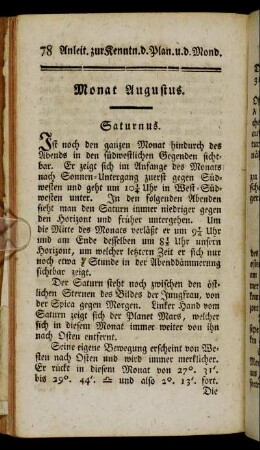 78 Anleit. zur Kenntn. d. Plan. u. d. Mond.
Monat Augustus.
Saturnus.
Ist noch den ganzen Monat hindurch des
Abends in den südwestlichen Gegenden sicht-
bar. Er zeigt sich im Anfange des Monats
nach Sonnen-Untergang zuerst gegen Süd-
westen und geht um 10¼ Uhr in West-Süd-
westen unter. In den folgenden Abenden
sieht man den Saturn immer niedriger gegen
den Horizont und früher untergehen. Um
die Mitte des Monats verläßt er um 9½ Uhr
und am Ende desselben um 8¼ Uhr unsern
Horizont, um welcher letztern Zeit er sich nur
noch etwa Stunde in der Abenddämmerung
sichtbar zeigt.
Der Saturn steht noch zwischen den öst-
lichen Sternen des Bildes der Jungfrau, von
der Spica gegen Morgen. Linker Hand vom
Saturn zeigt sich der Planet Mars, welcher
sich in diesem Monat immer weiter von ihn
nach Osten entfernt.
Seine eigene Bewegung erscheint von We-
sten nach Osten und wird immer merklicher.
Er rückt in diesem Monat von 27°. 31'.
bis 29°. 44'. ♎ und also 2°. 13'. fort.
Die